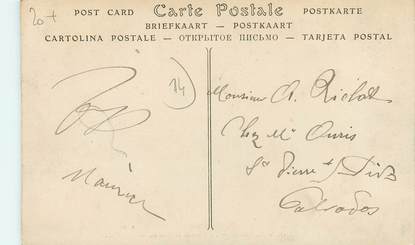 20+
POST CARD Carte Postale POSTKARTE
BRIEFKAART — POSTKAART
CARTOLINA POSTALE — ОТКРЫТОЕ ПИСЬМО — TARJETA POSTAL
14
Monsieur A.
Chez Mr
St Pierre s/ Dives
Calvados
Maurice